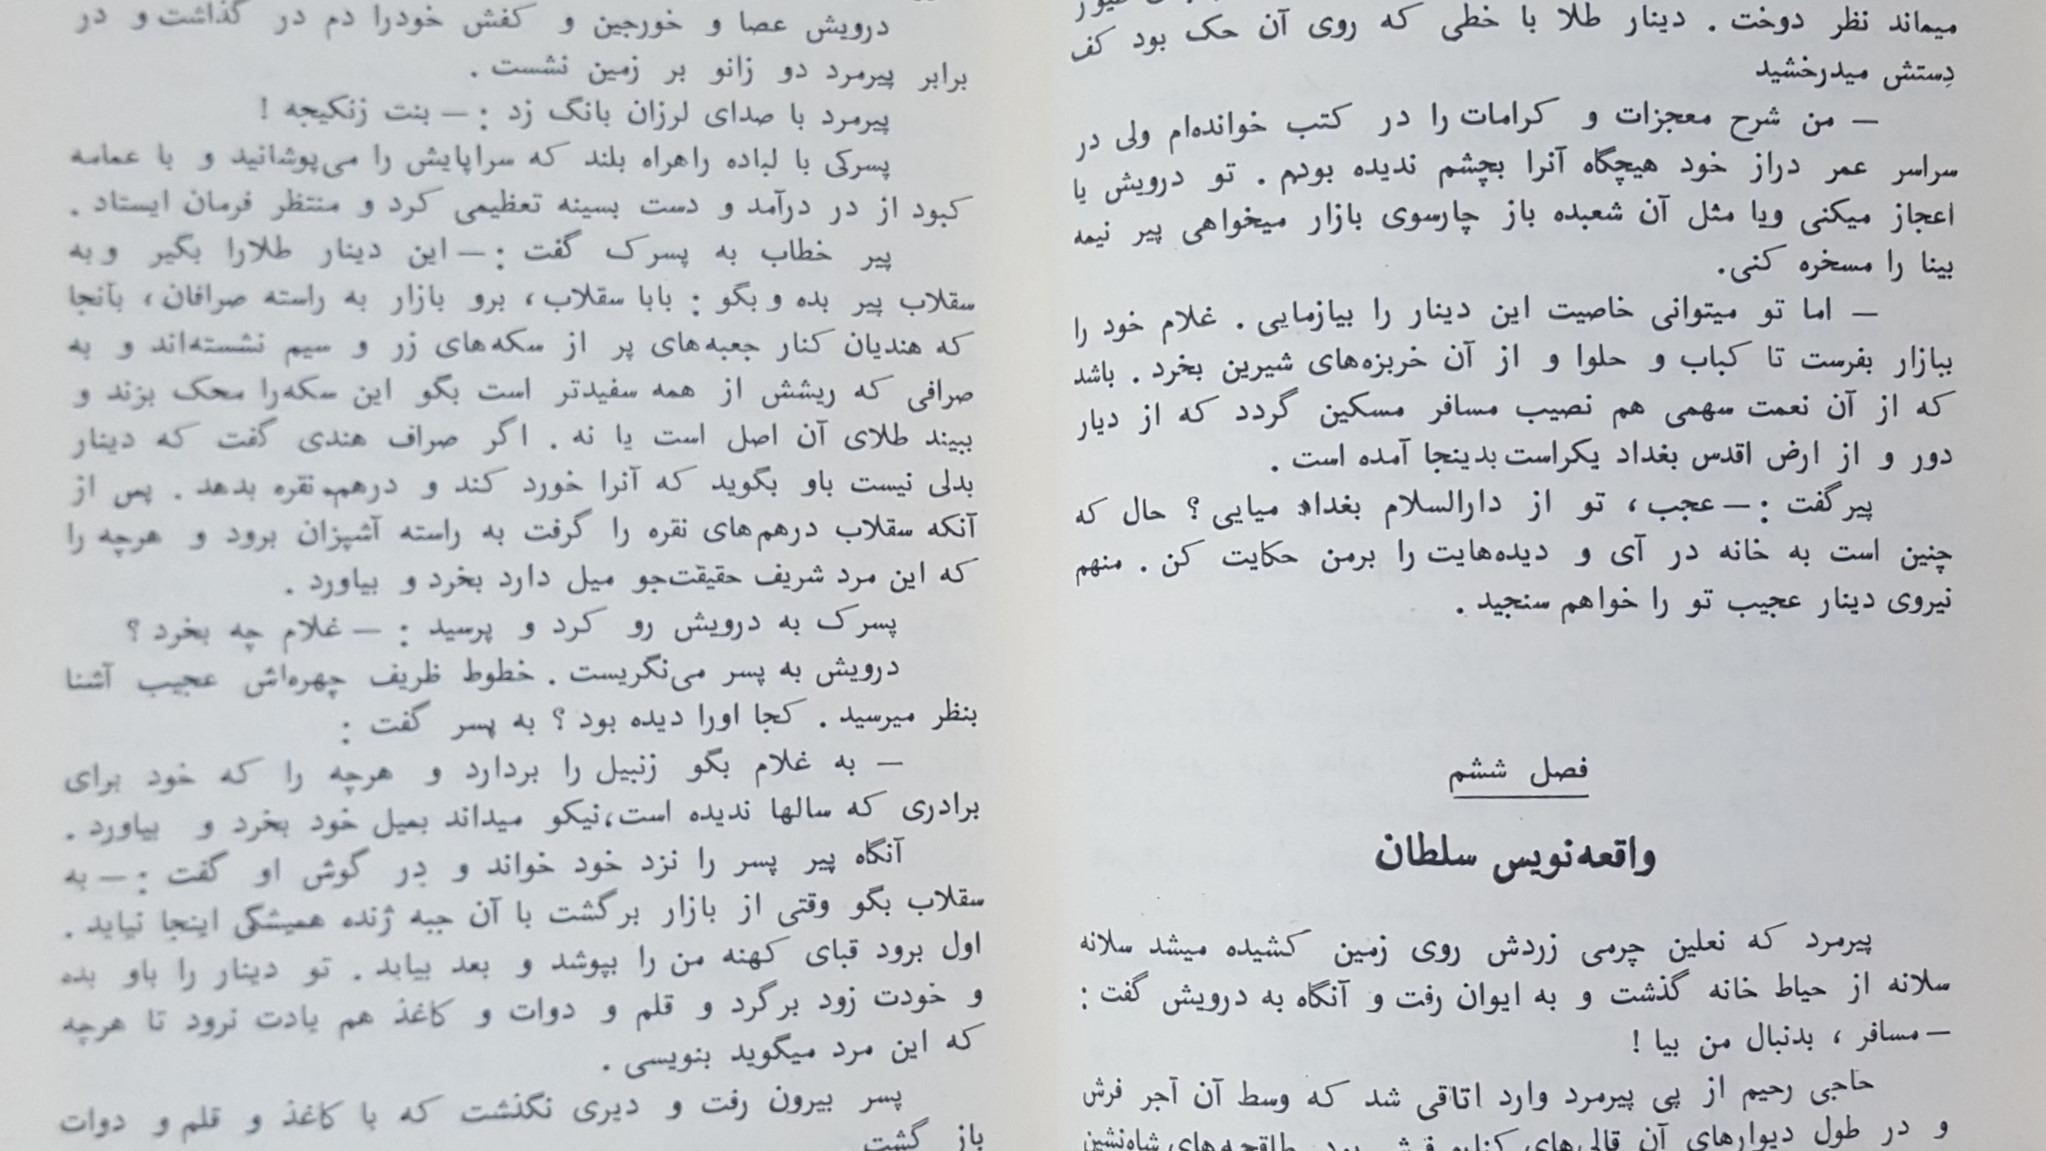 میماند نظر دوخت . دینار طلا با خطی که روی آن حک بود کف
دستش میدرخشید
— من شرح معجزات و کرامات را در کتب خوانده‌ام ولی در
سراسر عمر دراز خود هیچگاه آنرا بچشم ندیده بودم . تو درویش یا
اعجاز میکنی ویا مثل آن شعبده باز چارسوی بازار میخواهی پیر نیمه
بینا را مسخره کنی.
— اما تو میتوانی خاصیت این دینار را بیازمایی . غلام خود را
ببازار بفرست تا کباب و حلوا و از آن خربزه‌های شیرین بخرد . باشد
که از آن نعمت سهمی هم نصیب مسافر مسکین گردد که از دیار
دور و از ارض اقدس بغداد یکراست بدینجا آمده است .
پیرگفت : — عجب ، تو از دارالسلام بغداد میایی ؟ حال که
چنین است به خانه در آی و دیده‌هایت را برمن حکایت کن . منهم
نیروی دینار عجیب تو را خواهم سنجید .
فصل ششم
واقعه‌نویس سلطان
پیرمرد که نعلین چرمی زردش روی زمین کشیده میشد سلانه
سلانه از حیاط خانه گذشت و به ایوان رفت و آنگاه به درویش گفت :
— مسافر ، بدنبال من بیا !
حاجی رحیم از پی پیرمرد وارد اتاقی شد که وسط آن آجر فرش
و در طول دیوارهای آن قالی‌های کناره فرش بود. طاقچه‌های شاه‌نشین
درویش عصا و خورجین و کفش خودرا دم در گذاشت و در
برابر پیرمرد دو زانو بر زمین نشست .
پیرمرد با صدای لرزان بانگ زد : — بنت زنکیجه !
پسرکی با لباده راهراه بلند که سراپایش را می‌پوشانید و با عمامه
کبود از در درآمد و دست بسینه تعظیمی کرد و منتظر فرمان ایستاد .
پیر خطاب به پسرک گفت : — این دینار طلارا بگیر وبه
سقلاب پیر بده وبگو : بابا سقلاب، برو بازار به راسته صرافان، بآنجا
که هندیان کنار جعبه‌های پر از سکه‌های زر و سیم نشسته‌اند و به
صرافی که ریشش از همه سفیدتر است بگو این سکه‌را محک بزند و
ببیند طلای آن اصل است یا نه . اگر صراف هندی گفت که دینار
بدلی نیست باو بگوید که آنرا خورد کند و درهم نقره بدهد . پس از
آنکه سقلاب درهم‌های نقره را گرفت به راسته آشپزان برود و هرچه را
که این مرد شریف حقیقت‌جو میل دارد بخرد و بیاورد .
پسرک به درویش رو کرد و پرسید : — غلام چه بخرد ؟
درویش به پسر می‌نگریست . خطوط ظریف چهره‌اش عجیب آشنا
بنظر میرسید . کجا اورا دیده بود ؟ به پسر گفت :
— به غلام بگو زنبیل را بردارد و هرچه را که خود برای
برادری که سالها ندیده است،نیکو میداند بمیل خود بخرد و بیاورد .
آنگاه پیر پسر را نزد خود خواند و در گوش او گفت : — به
سقلاب بگو وقتی از بازار برگشت با آن جبه ژنده همیشگی اینجا نیاید .
اول برود قبای کهنه من را بپوشد و بعد بیابد . تو دینار را باو بده
و خودت زود برگرد و قلم و دوات و کاغذ هم یادت نرود تا هرچه
که این مرد میگوید بنویسی .
پسر بیرون رفت و دیری نگذشت که با کاغذ و قلم و دوات
باز گشت